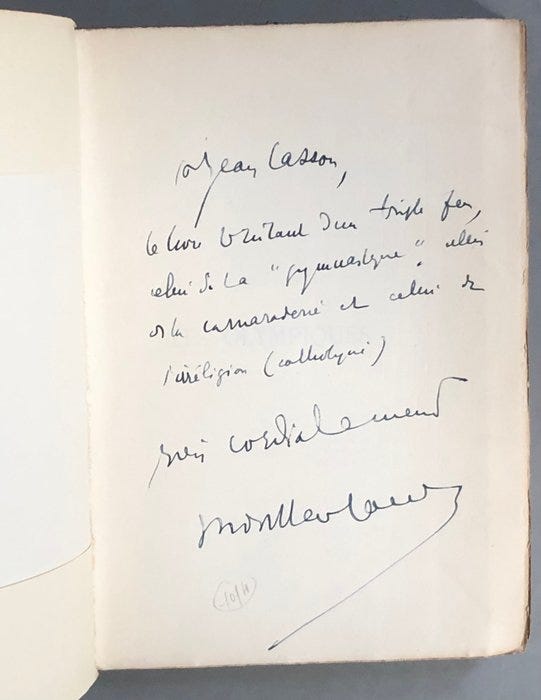 à Jean Cassou,
ce livre brûlant d'un triple feu,
celui de la "gymnastique", celui
de la camaraderie et celui de
l'irréligion (catholique)
Très cordialement
Montherlant
OLYMPIQUES